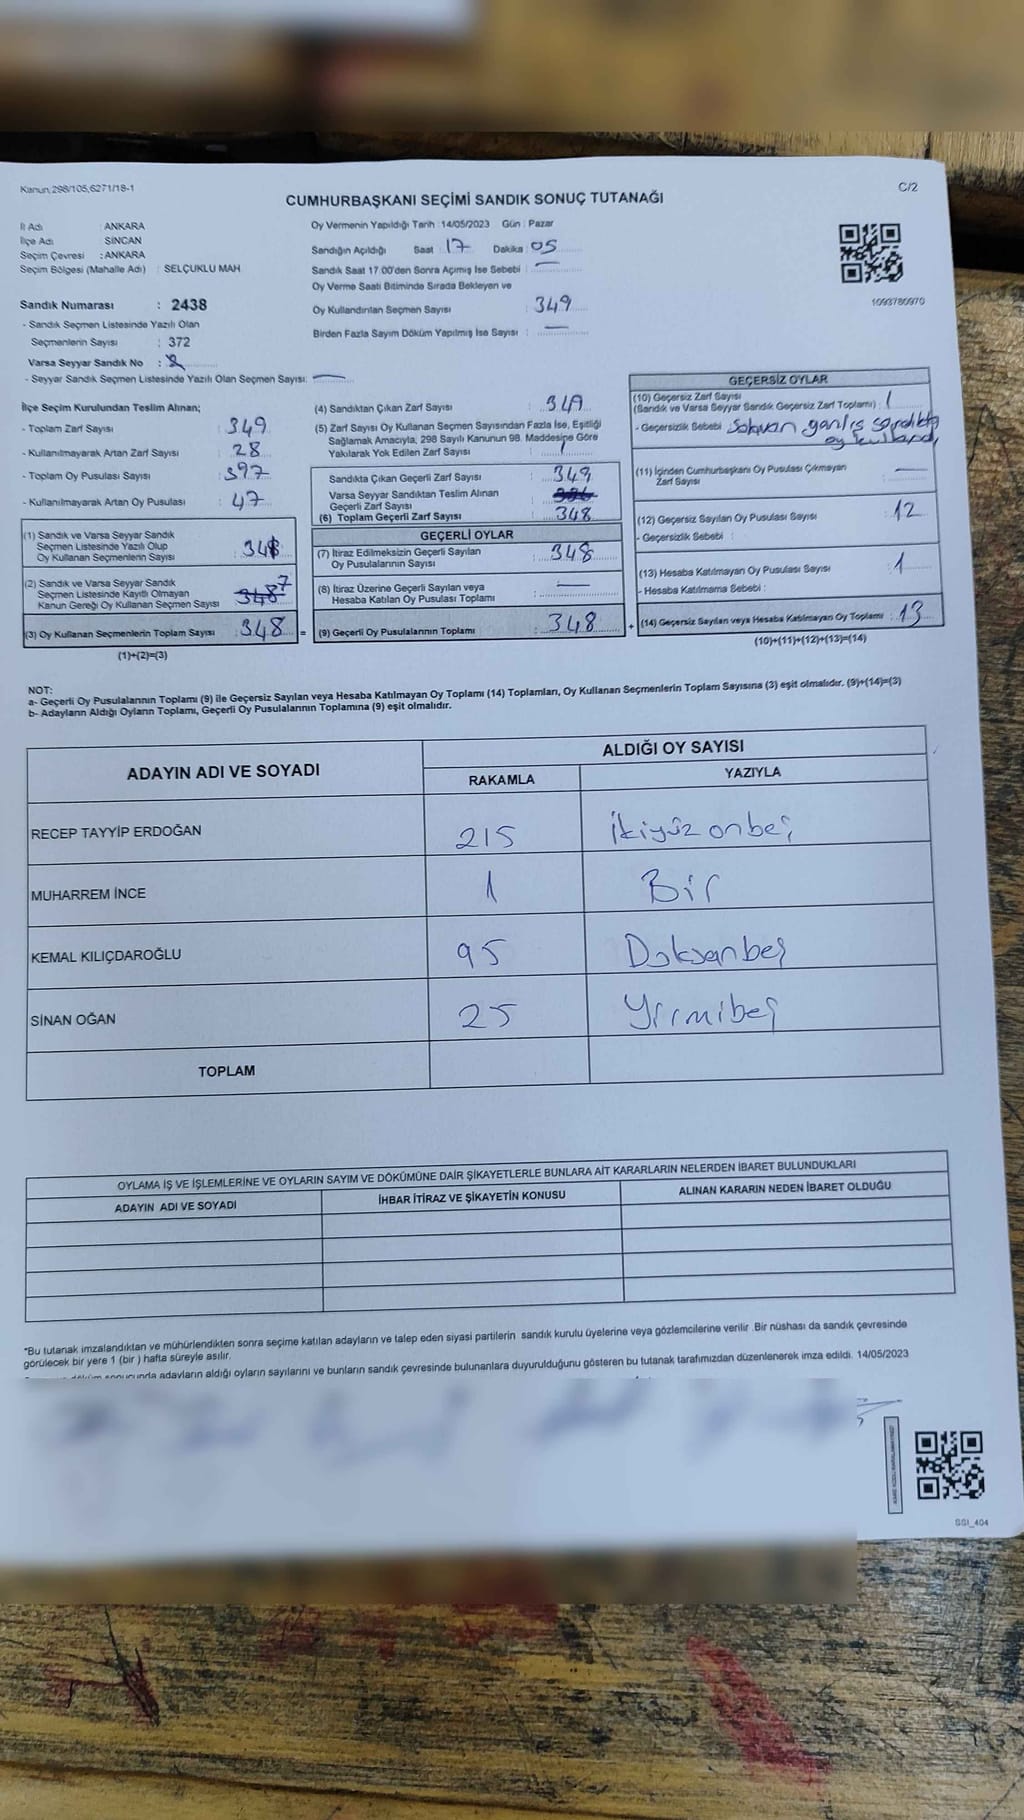 Kanun,298/105,6271/18-1
C/2
CUMHURBAŞKANI SEÇİMİ SANDIK SONUÇ TUTANAĞI
İl Adı : ANKARA
İlçe Adı : SİNCAN
Seçim Çevresi : ANKARA
Seçim Bölgesi (Mahalle Adı) : SELÇUKLU MAH
Sandık Numarası : 2438
- Sandık Seçmen Listesinde Yazılı Olan
Seçmenlerin Sayısı : 372
Varsa Seyyar Sandık No :
- Seyyar Sandık Seçmen Listesinde Yazılı Olan Seçmen Sayısı: —
Oy Vermenin Yapıldığı Tarih :14/05/2023 Gün : Pazar
Sandığın Açıldığı Saat : 17 Dakika : 05
Sandık Saat 17.00'den Sonra Açımış İse Sebebi : —
Oy Verme Saati Bitiminde Sırada Bekleyen ve
Oy Kullandırılan Seçmen Sayısı : 349
Birden Fazla Sayım Döküm Yapılmış İse Sayısı : —
1093780970
İlçe Seçim Kurulundan Teslim Alınan;
- Toplam Zarf Sayısı : 349
- Kullanılmayarak Artan Zarf Sayısı : 28
- Toplam Oy Pusulası Sayısı : 397
- Kullanılmayarak Artan Oy Pusulası : 47
(1) Sandık ve Varsa Seyyar Sandık
Seçmen Listesinde Yazılı Olup
Oy Kullanan Seçmenlerin Sayısı : 348
(2) Sandık ve Varsa Seyyar Sandık
Seçmen Listesinde Kayıtlı Olmayan
Kanun Gereği Oy Kullanan Seçmen Sayısı : 348 7
(3) Oy Kullanan Seçmenlerin Toplam Sayısı : 348 =
(1)+(2)=(3)
(4) Sandıktan Çıkan Zarf Sayısı : 349
(5) Zarf Sayısı Oy Kullanan Seçmen Sayısından Fazla İse, Eşitliği
Sağlamak Amacıyla, 298 Sayılı Kanunun 98. Maddesine Göre
Yakılarak Yok Edilen Zarf Sayısı : 1
Sandıkta Çıkan Geçerli Zarf Sayısı : 349
Varsa Seyyar Sandıktan Teslim Alınan
Geçerli Zarf Sayısı :
(6) Toplam Geçerli Zarf Sayısı : 348
GEÇERLİ OYLAR
(7) İtiraz Edilmeksizin Geçerli Sayılan
Oy Pusulalarının Sayısı : 348
(8) İtiraz Üzerine Geçerli Sayılan veya
Hesaba Katılan Oy Pusulası Toplamı : —
(9) Geçerli Oy Pusulalarının Toplamı : 348 +
GEÇERSİZ OYLAR
(10) Geçersiz Zarf Sayısı
(Sandık ve Varsa Seyyar Sandık Geçersiz Zarf Toplamı) : 1
- Geçersizlik Sebebi : yanlış sandıkta
oy
(11) İçinden Cumhurbaşkanı Oy Pusulası Çıkmayan
Zarf Sayısı : —
(12) Geçersiz Sayılan Oy Pusulası Sayısı : 12
- Geçersizlik Sebebi :
(13) Hesaba Katılmayan Oy Pusulası Sayısı : 1
- Hesaba Katılmama Sebebi :
(14) Geçersiz Sayılan veya Hesaba Katılmayan Oy Toplamı : 13
(10)+(11)+(12)+(13)=(14)
NOT:
a- Geçerli Oy Pusulalarının Toplamı (9) ile Geçersiz Sayılan veya Hesaba Katılmayan Oy Toplamı (14) Toplamları, Oy Kullanan Seçmenlerin Toplam Sayısına (3) eşit olmalıdır. (9)+(14)=(3)
b- Adayların Aldığı Oyların Toplamı, Geçerli Oy Pusulalarının Toplamına (9) eşit olmalıdır.
ADAYIN ADI VE SOYADI
ALDIĞI OY SAYISI
RAKAMLA YAZIYLA
RECEP TAYYİP ERDOĞAN 215 İkiyüz onbeş
MUHARREM İNCE 1 Bir
KEMAL KILIÇDAROĞLU 95 Doksanbeş
SİNAN OĞAN 25 Yirmibeş
TOPLAM
OYLAMA İŞ VE İŞLEMLERİNE VE OYLARIN SAYIM VE DÖKÜMÜNE DAİR ŞİKAYETLERLE BUNLARA AİT KARARLARIN NELERDEN İBARET BULUNDUKLARI
ADAYIN ADI VE SOYADI İHBAR İTİRAZ VE ŞİKAYETİN KONUSU ALINAN KARARIN NEDEN İBARET OLDUĞU
*Bu tutanak imzalandıktan ve mühürlendikten sonra seçime katılan adayların ve talep eden siyasi partilerin sandık kurulu üyelerine veya gözlemcilerine verilir .Bir nüshası da sandık çevresinde
görülecek bir yere 1 (bir ) hafta süreyle asılır.
adayların aldığı oyların sayılarını ve bunların sandık çevresinde bulunanlara duyurulduğunu gösteren bu tutanak tarafımızdan düzenlenerek imza edildi. 14/05/2023
SSI_404